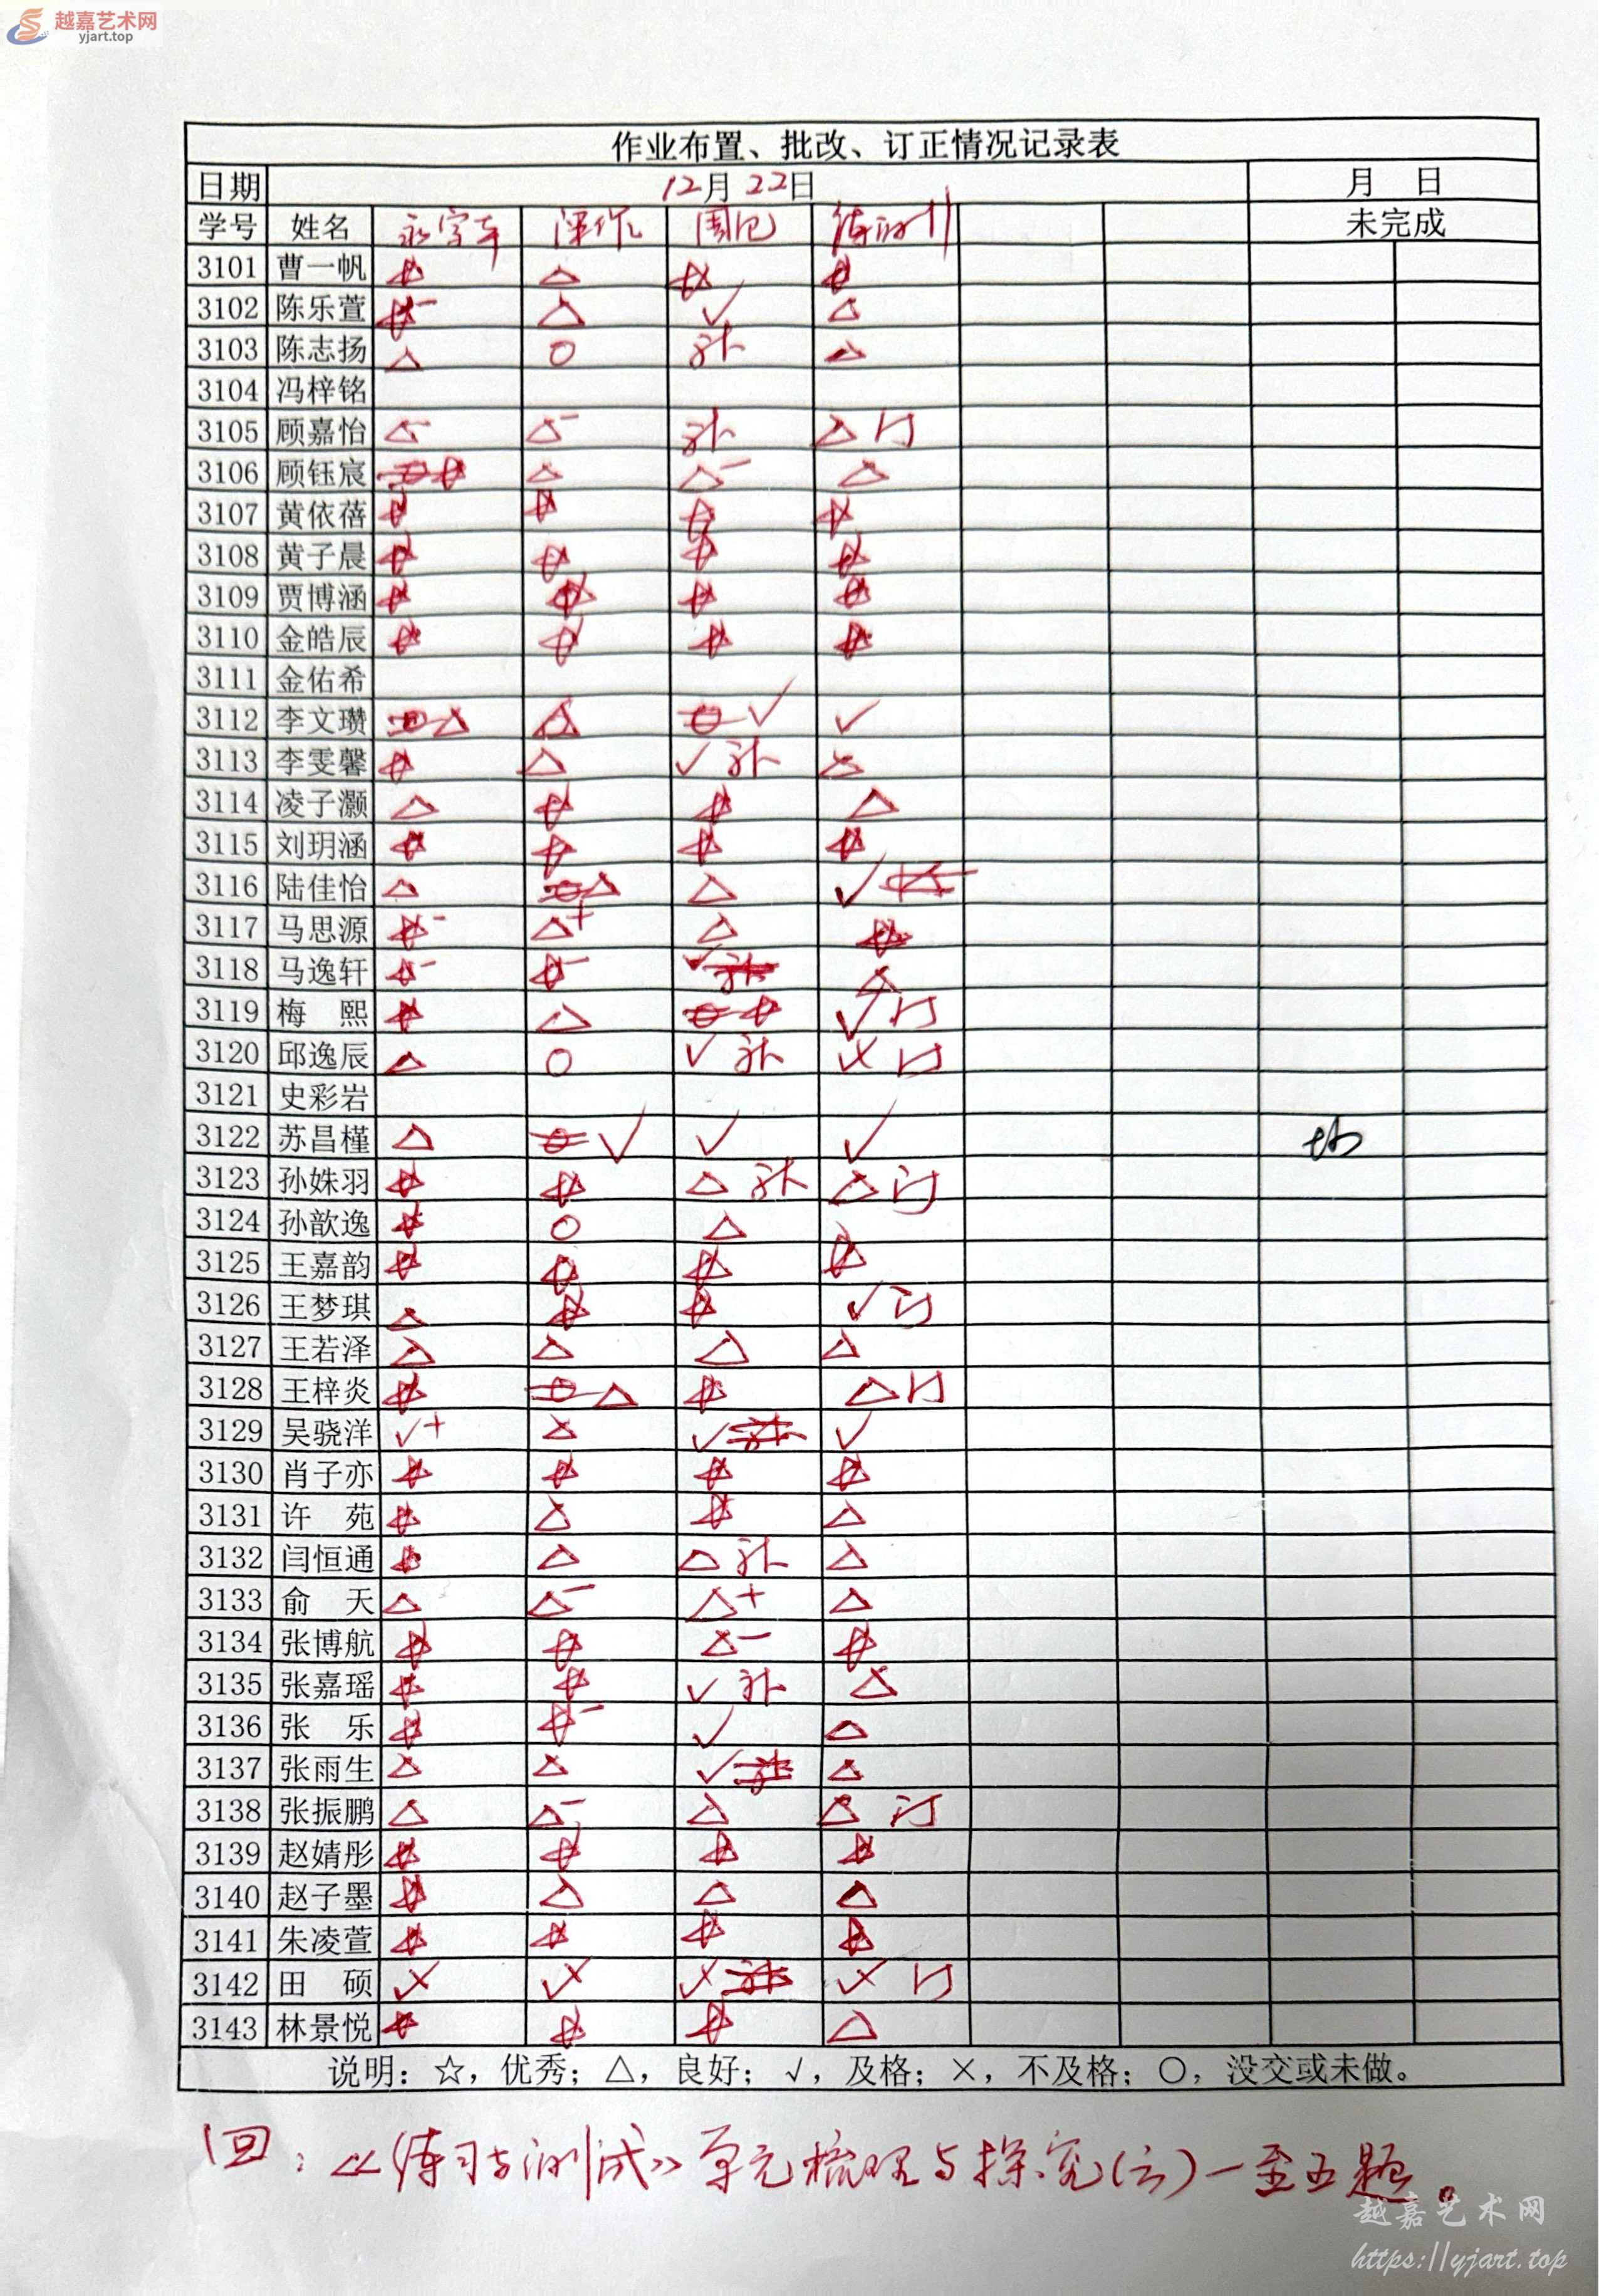 越嘉艺术网
yjart.top
作业布置、批改、订正情况记录表
日期 12月22日 月 日
学号 姓名 课作 周记 未完成
3101 曹一帆 ☆ △ ☆ ☆
3102 陈乐萱 ☆- △ √ △
3103 陈志扬 △ ○ 补 △
3104 冯梓铭
3105 顾嘉怡 △- △- 补 △ 订
3106 顾钰宸 ☆ △ △- △
3107 黄依蓓 ☆ ☆ ☆ ☆
3108 黄子晨 ☆ ☆ ☆ ☆
3109 贾博涵 ☆ ☆ ☆ ☆
3110 金皓辰 ☆ ☆ ☆ ☆
3111 金佑希
3112 李文瓒 △ △ √ √
3113 李雯馨 ☆ △ √ 补 △
3114 凌子灏 △ ☆ ☆ △
3115 刘玥涵 ☆ ☆ ☆ ☆
3116 陆佳怡 △ △ △ √
3117 马思源 ☆- △+ △ ☆
3118 马逸轩 ☆- ☆- √ △
3119 梅 熙 ☆ △ ☆ √ 订
3120 邱逸辰 △ ○ √ 补 × 订
3121 史彩岩
3122 苏昌槿 △ √ √ √
3123 孙姝羽 ☆ ☆ △ 补 △ 订
3124 孙歆逸 ☆ ○ △
3125 王嘉韵 ☆ ☆ ☆ ☆
3126 王梦琪 △ ☆ ☆ √ 订
3127 王若泽 △ △ △ △
3128 王梓炎 ☆ △ ☆ △ 订
3129 吴骁洋 √+ △ √ √
3130 肖子亦 ☆ ☆ ☆ ☆
3131 许 苑 ☆ △ ☆ △
3132 闫恒通 ☆ △ △ 补 △
3133 俞 天 △ △- △+ △
3134 张博航 ☆ ☆ △- ☆
3135 张嘉瑶 ☆ ☆ √ 补 △
3136 张 乐 ☆ ☆- √ △
3137 张雨生 △ △ √ △
3138 张振鹏 △ △- △ △ 订
3139 赵婧彤 ☆ ☆ ☆ ☆
3140 赵子墨 ☆ △ △ △
3141 朱凌萱 ☆ ☆ ☆ ☆
3142 田 硕 × × × × 订
3143 林景悦 ☆ ☆ ☆ △
说明：☆，优秀；△，良好；√，及格；×，不及格；○，没交或未做。
回：《练习与测试》单元梳理与探究(六)一至五题。
越嘉艺术网
https://yjart.top